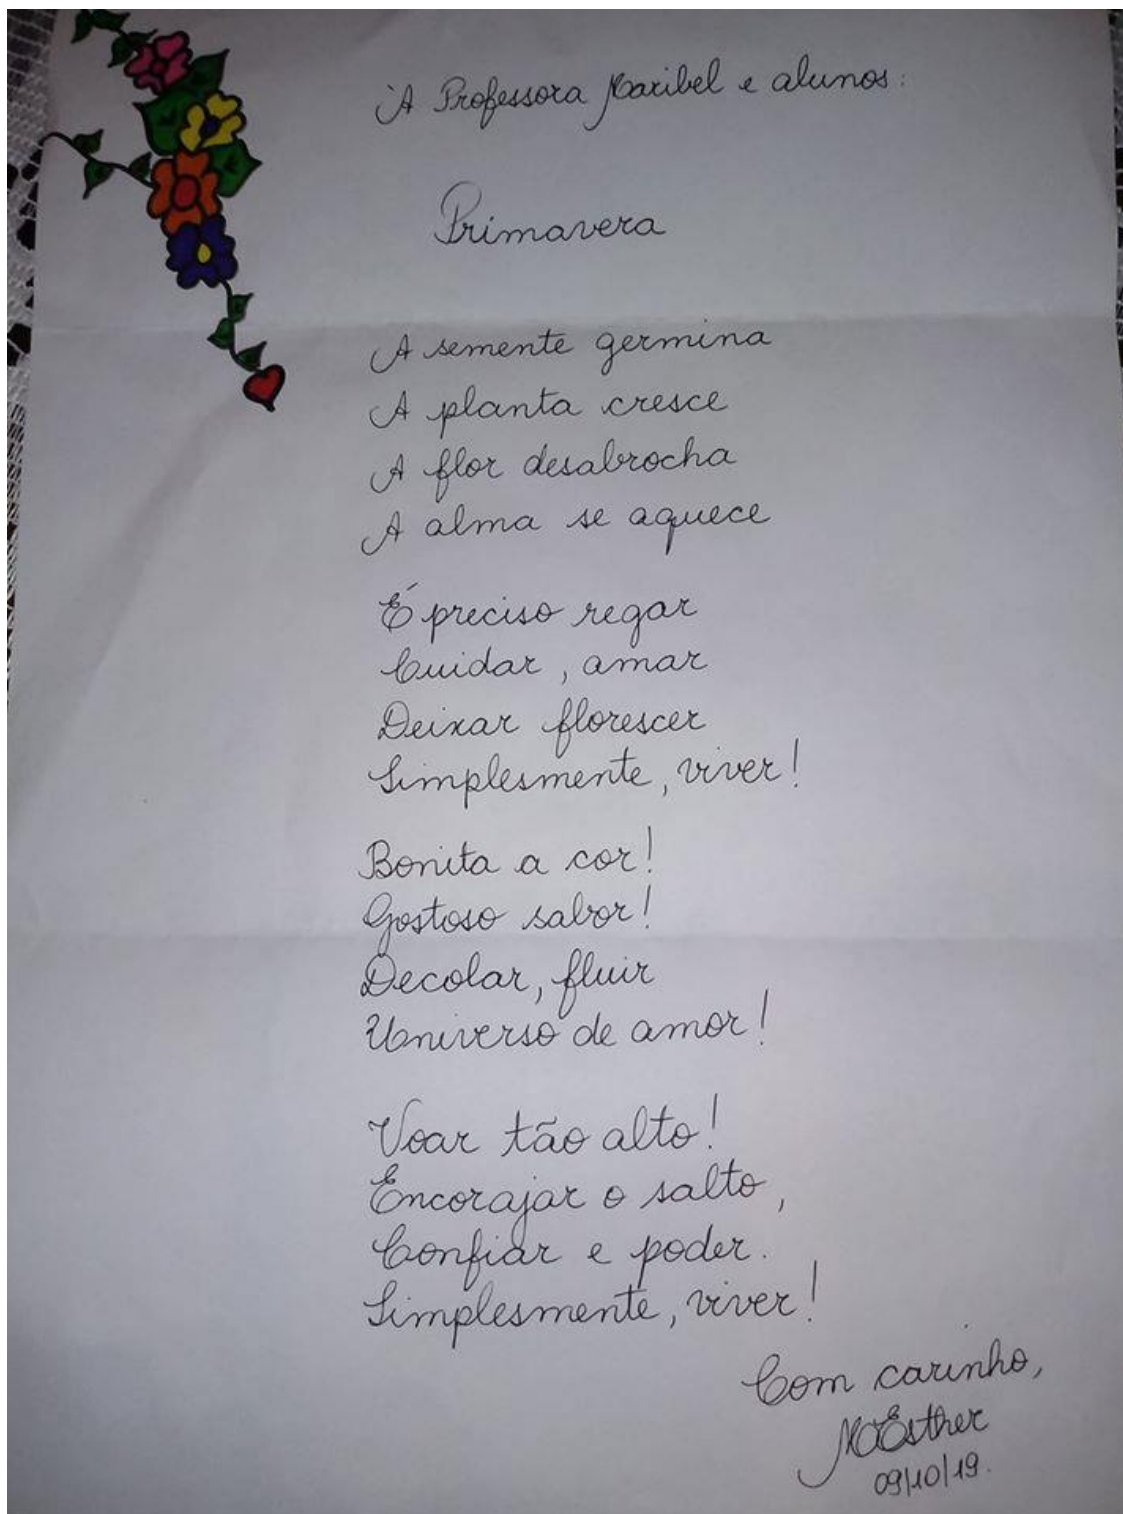 À Professora Maribel e alunos:
Primavera
A semente germina
A planta cresce
A flor desabrocha
A alma se aquece
É preciso regar
Cuidar, amar
Deixar florescer
Simplesmente, viver!
Bonita a cor!
Gostoso sabor!
Decolar, fluir
Universo de amor!
Voar tão alto!
Encorajar o salto,
Confiar e poder.
Simplesmente, viver!
Com carinho,
MªEsther
09/10/19.